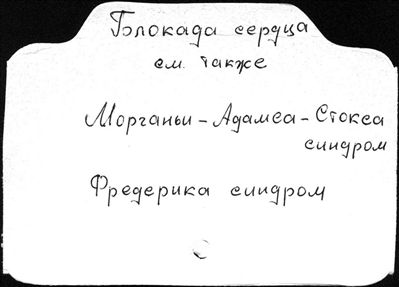 Блокада сердца
см. также
Морганьи - Адамса - Стокса
синдром
Фредерика синдром